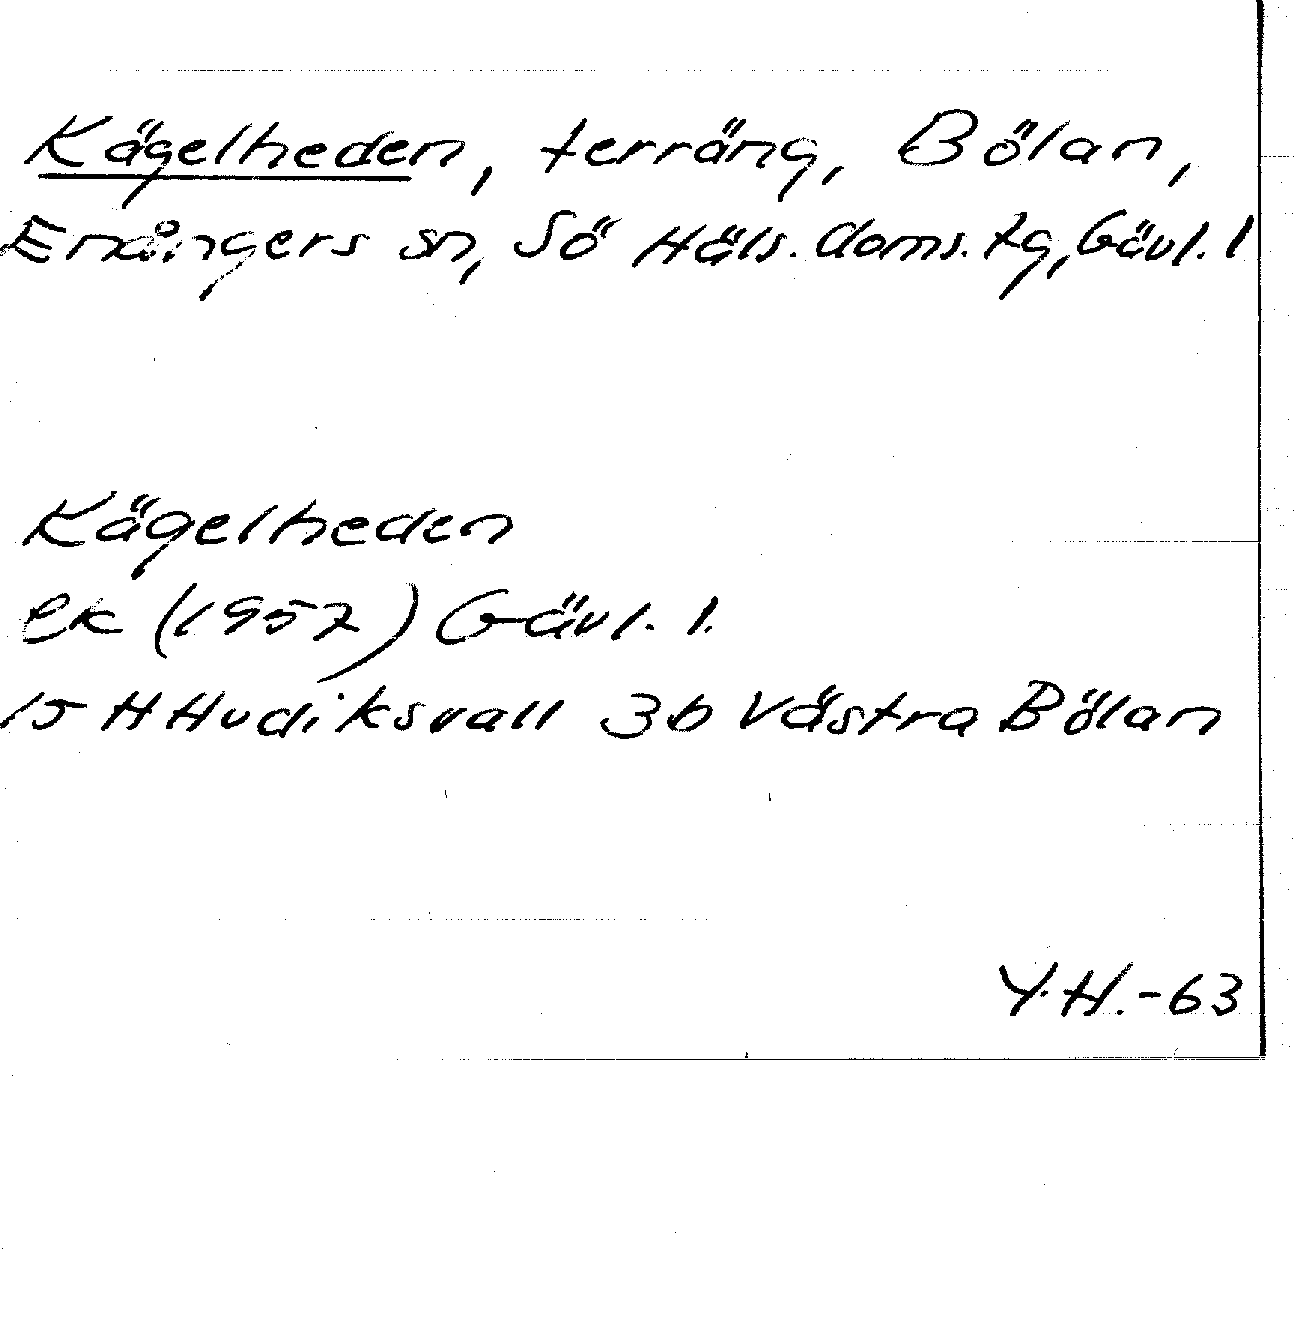 Kägelheden, terräng, Bölan,
Enångers sn, Sö Häls. doms. tg, Gävl. l
Kägelheden
ek (1957) Gävl. l.
15 H Hudiksvall 3b Västra Bölan
Y.H.-63